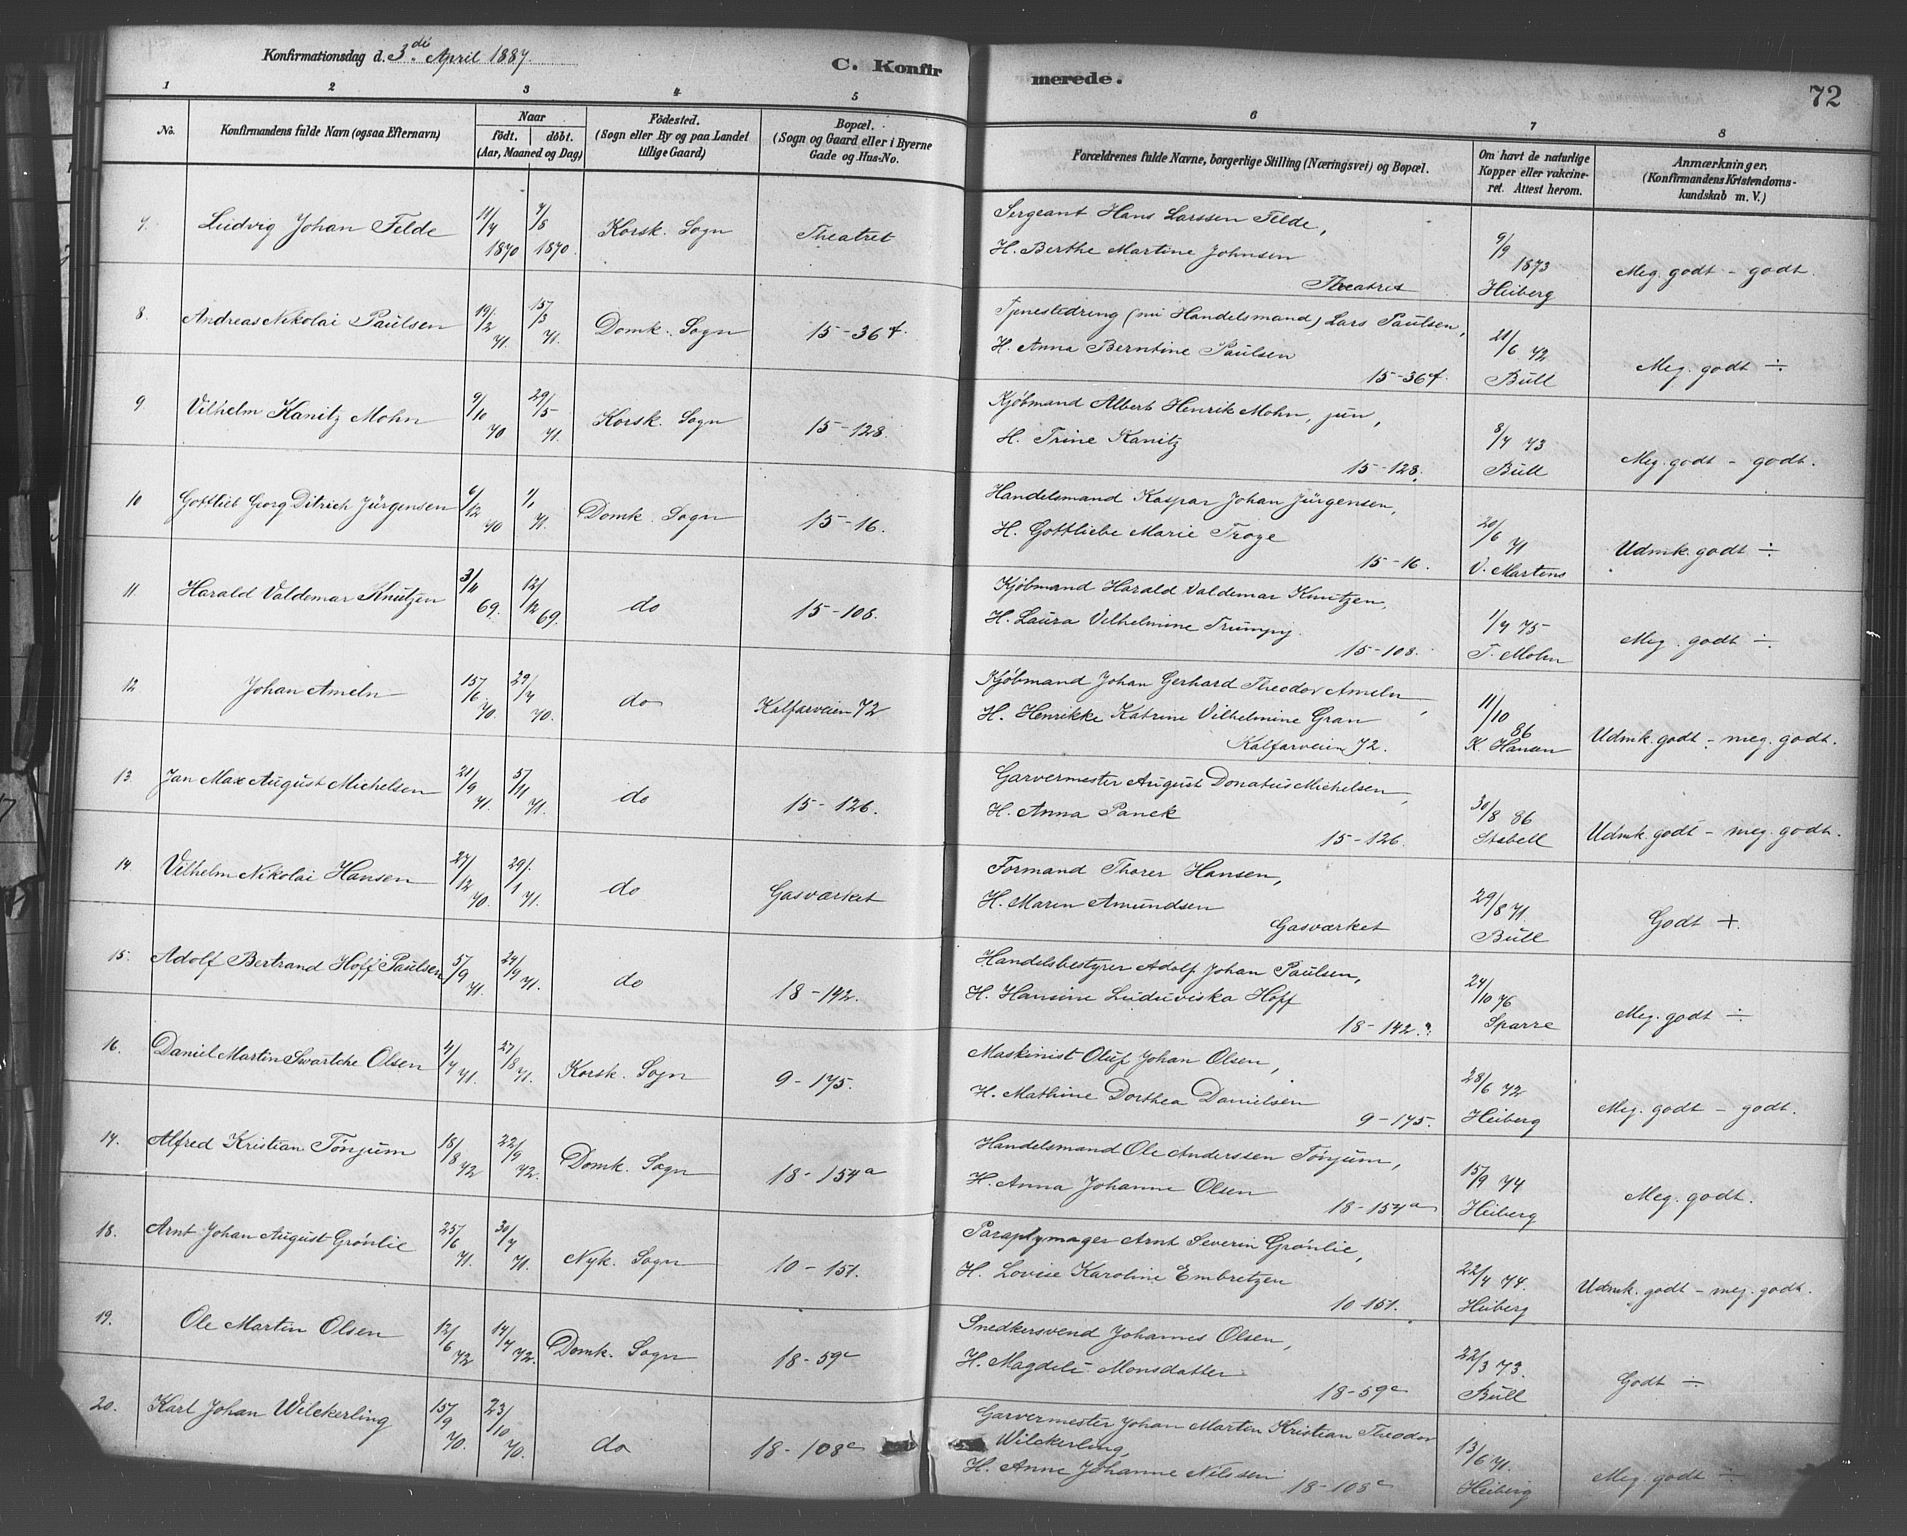 Konfirmationsdag d. 3di April 1887.
C. Konfir merede. 72
1 2 3 4 5 6 7 8
No. Konfirmandens fulde Navn (ogsaa Efternavn) Naar født. døbt. (Aar, Maaned og Dag) Fødested. (Sogn eller By og paa Landet tillige Gaard) Bopæl. (Sogn og Gaard eller i Byerne Gade og Hus-No. Forældrenes fulde Navne, borgerlige Stilling (Næringsvei) og Bopæl. Om havt de naturlige Kopper eller vakcineret. Attest herom. Anmærkninger. (Konfirmandens Kristendomskundskab m. V.)
7. Ludvig Johan Telde 11/4 1870 7/8 1870. Korsk. Sogn Theatret Sergeant Hans Larssen Telde,
H. Berthe Martine Johnsen
Theatret 9/9 1873 Heiberg Meg. godt - godt.
8. Andreas Nikolai Paulsen 19/2 71. 15/3 71. Domk. Sogn 15-36f. Tjenestedreng (nu Handelsmand) Lars Paulsen,
H. Anna Berntine Paulsen
15-36f. 21/6 72 Bull Meg. godt ÷
9 Vilhelm Kanitz Mohn 9/10 70 29/5 71. Korsk. Sogn 15-128. Kjøbmand Albert Henrik Mohn, jun,
H. Trine Kanitz
15-128. 8/7 73 Bull Meg. godt - godt.
10 Gottlieb Georg Ditrich Jürgensen 6/12 70 1/1 71. Domk. Sogn 15-16. Handelsmand Kaspar Johan Jürgensen,
H. Gottliebe Marie Troye
15-16. 20/6 71 V. Martens Udmk. godt ÷
11. Harald Valdemar Knutzen 3/11 69. 12/12 69. do 15-108. Kjøbmand Harald Valdemar Knutzen,
H. Laura Vilhelmine Trumpy.
15-108. 1/7 75 T. Mohn Meg. godt ÷
12. Johan Ameln 15/6 70. 29/7 70. do Kalfarveien 72 Kjøbmand Johan Gerhard Theodor Ameln,
H. Henrikke Katrine Vilhelmine Gran
Kalfarveien 72. 11/10 86 K. Hansen Udmk. godt - meg. godt.
13. Jan Max August Michelsen 21/9 71. 5/11 71. do 15-126. Garvermester August Donatus Michelsen,
H. Anna Panck
15-126. 30/8 86 Stabell Udmk. godt - meg. godt.
14. Vilhelm Nikolai Hansen 27/12 70. 29/1 71. do Gasværket Formand Thorer Hansen,
H. Maren Amundsen
Gasværket 29/8 71. Bull Godt +
15. Adolf Bertrand Hoff Paulsen 5/9 71. 24/9 71. do 18-142. Handelsbestyrer Adolf Johan Paulsen,
H. Hansine Luduviska Hoff
18-142. 24/10 76 Sparre Meg. godt ÷
16. Daniel Martin Swartche Olsen 4/7 71. 27/8 71. Korsk. Sogn 9-175. Maskinist Oluf Johan Olsen,
H. Mathine Dorthea Danielsen
9-175. 28/6 72 Heiberg Meg. godt - godt.
17. Alfred Kristian Tønjum 18/8 72 22/9 72. Domk. Sogn 18-154a Handelsmand Ole Anderssen Tønjum,
H. Anna Johanne Olsen
18-154a 15/9 74 Heiberg Meg. godt.
18. Arnt Johan August Grønlie 25/6 71. 30/7 71. Nyk. Sogn 10-151. Paraplymager Arnt Severin Grønlie,
H. Lovise Karoline Embretzen
10-151. 22/4 74. Heiberg Udmk. godt - meg. godt.
19. Ole Martin Olsen 12/6 72 14/7 72. Domk. Sogn 18-59c Snedkersvend Johannes Olsen,
H. Magdeli Monsdatter
18-59c 22/3 73. Bull Godt ÷
20. Karl Johan Wilckerling 15/9 70. 23/10 70. do 18-108c Garvermester Johan Martin Kristian Theodor
Wilckerling,
H. Anne Johanne Nilssen
18-108c 13/6 71. Heiberg Meg. godt ÷